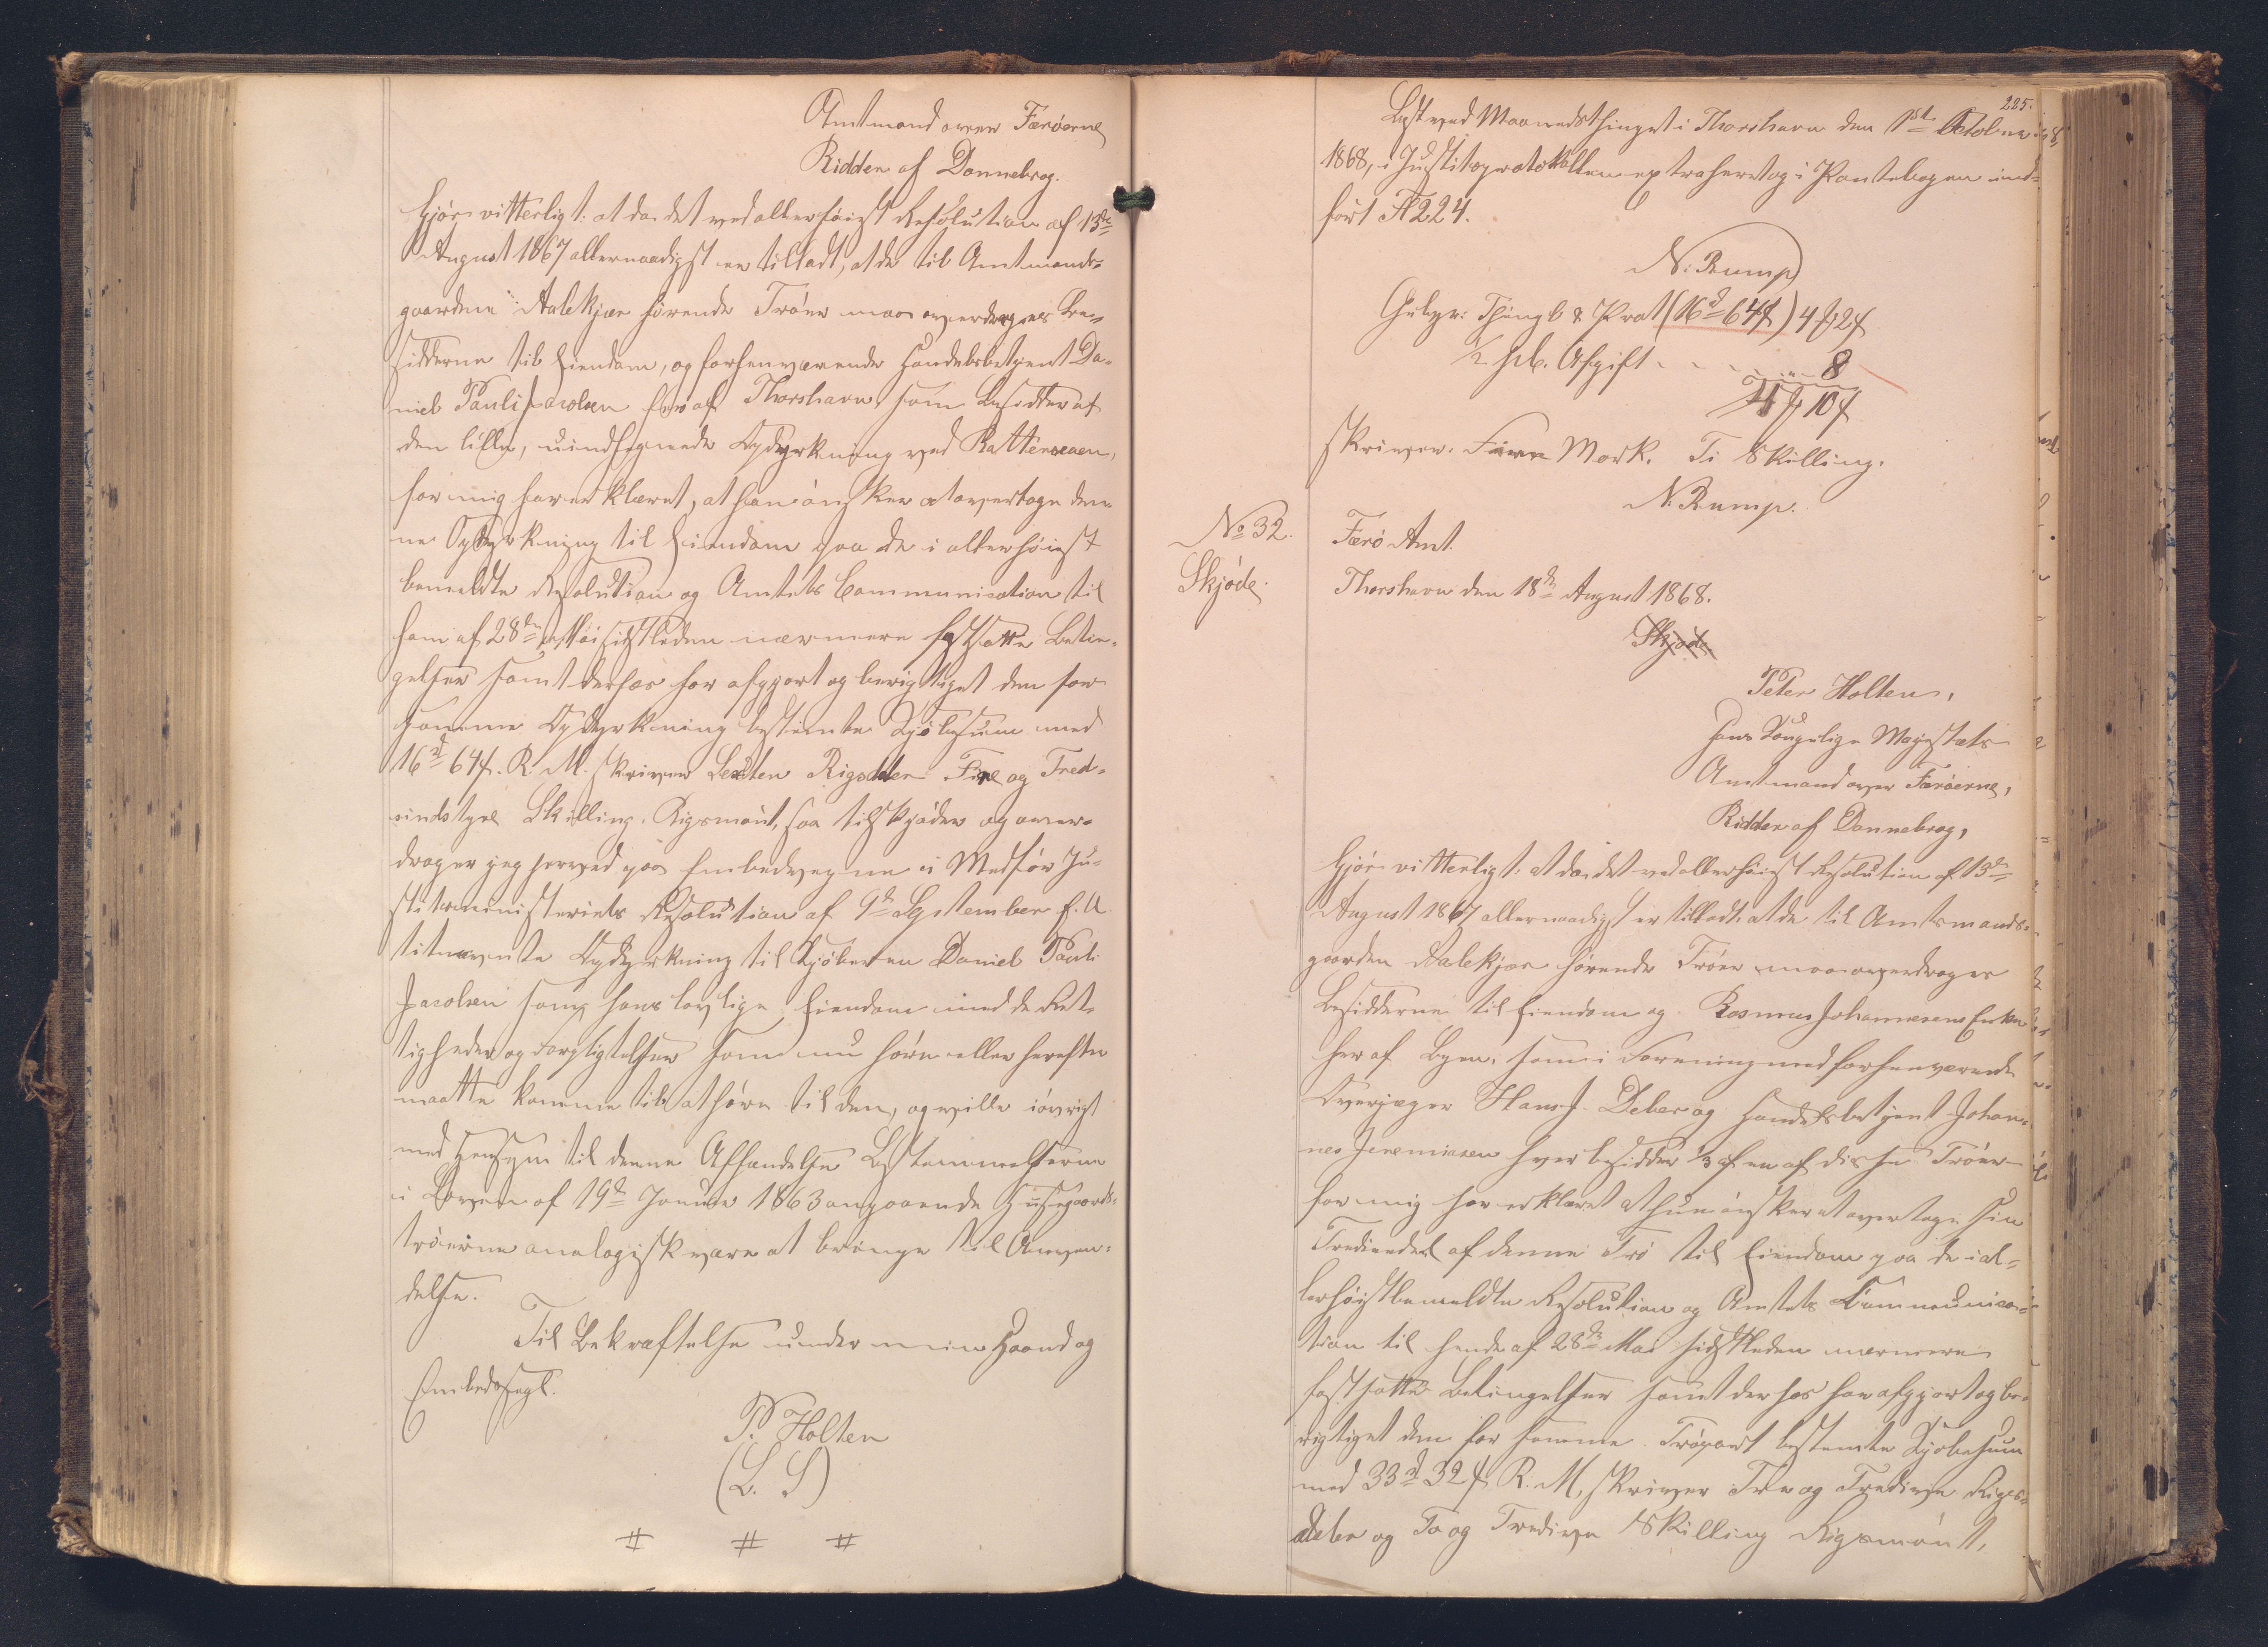 Amtmand over Færöerne
Ridder af Dannebrog.
Gjör vitterligt: at da det ved allerhöiest Resolution af 13de
August 1867 allernaadigst er tilladt, at de til Amtmands-
gaarden Aalekjær hörende Tröer maa overdrages Be-
sidderne til Eiendom, og forhenværende Handelsbetjent Da-
niel Pauli Jacobsen her af Thorshavn, som Besidder af
den lille, uindhegnede Opdyrkning ved
for mig har erklæret, at han önsker at overtage den-
ne Opdyrkning til Eiendom paa de i allerhöiest
bemeldte Resolution og Amtets Communication til
ham af 28de Mai sidstleden nærmere fastsatte Betin-
gelser samt derhos har afgjort og berigtiget den for
samme Opdyrkning bestemte Kjöbesum med
16 rd 64 s. R. M. skriver Sexten Rigsdaler Fire og Tred-
sindstyve Skilling Rigsmönt, saa tilskjöder og over-
drager jeg herved paa Embedsvegne i Medför Ju-
stitsministeriets Resolution af 9de September f. A.
bemeldte Opdyrkning til Kjöberen Daniel Pauli
Jacobsen som hans lovlige Eiendom med de Ret-
tigheder og Forpligtelser som nu höre eller herefter
maatte komme til at höre til den, og ville iövrigt
med Hensyn til denne Afhændelse Bestemmelserne
i Loven af 19de Januar 1863 angaaende Huusgaards-
tröerne analogisk være at bringe til Anven-
delse.
Til Bekræftelse under min Haand og
Embedssegl.
P. Holten
(L. S)
# # #
225.
Læst ved Maanedsthinget i Thorshavn den 1ste Octobr
1868, i Justitsprotokollen extraheret og i Pantebogen ind-
fört F 224.
N. Rump
Gebyr: Thingl. & Prot (16 rd 64 s) 4 M 2 s
1/2 pCt. Afgift - - - - „ - 8
4 M 10 s
skriver. Fire Mark. Ti Skilling.
N. Rump.
No 32.
Skjöde.
Færö Amt.
Thorshavn den 18de August 1868.
Skjöde.
Peter Holten,
Hans Kongelige Majestæts
Amtmand over Færöerne,
Ridder af Dannebrog,
Gjör vitterligt: at da det ved allerhöiest Resolution af 13de
August 1867 allernaadigst er tilladt, at de til Amtmands-
gaarden Aalekjær hörende Tröer maa overdrages
Besidderne til Eiendom og Rasmus Johannesens Enke
her af Byen, som i Forening med forhenværende
Overjæger Hans J. Debes og Handelsbetjent Johan-
nes Jeremiasen hver besidder 1/3 af en af disse Tröer
for mig har erklæret at hun önsker at overtage sin
Trediedeel af denne Trö til Eiendom paa de i al-
lerhöistbemeldte Resolution og Amtets Communica-
tion til hende af 28de Mai sidstleden nærmere
fastsatte Betingelser samt derhos har afgjort og be-
rigtiget den for samme Tröpart bestemte Kjöbesum
med 33 rd 32 s R. M, skriver Tre og Tredive Rigs-
daler og To og Tredive Skilling Rigsmönt,